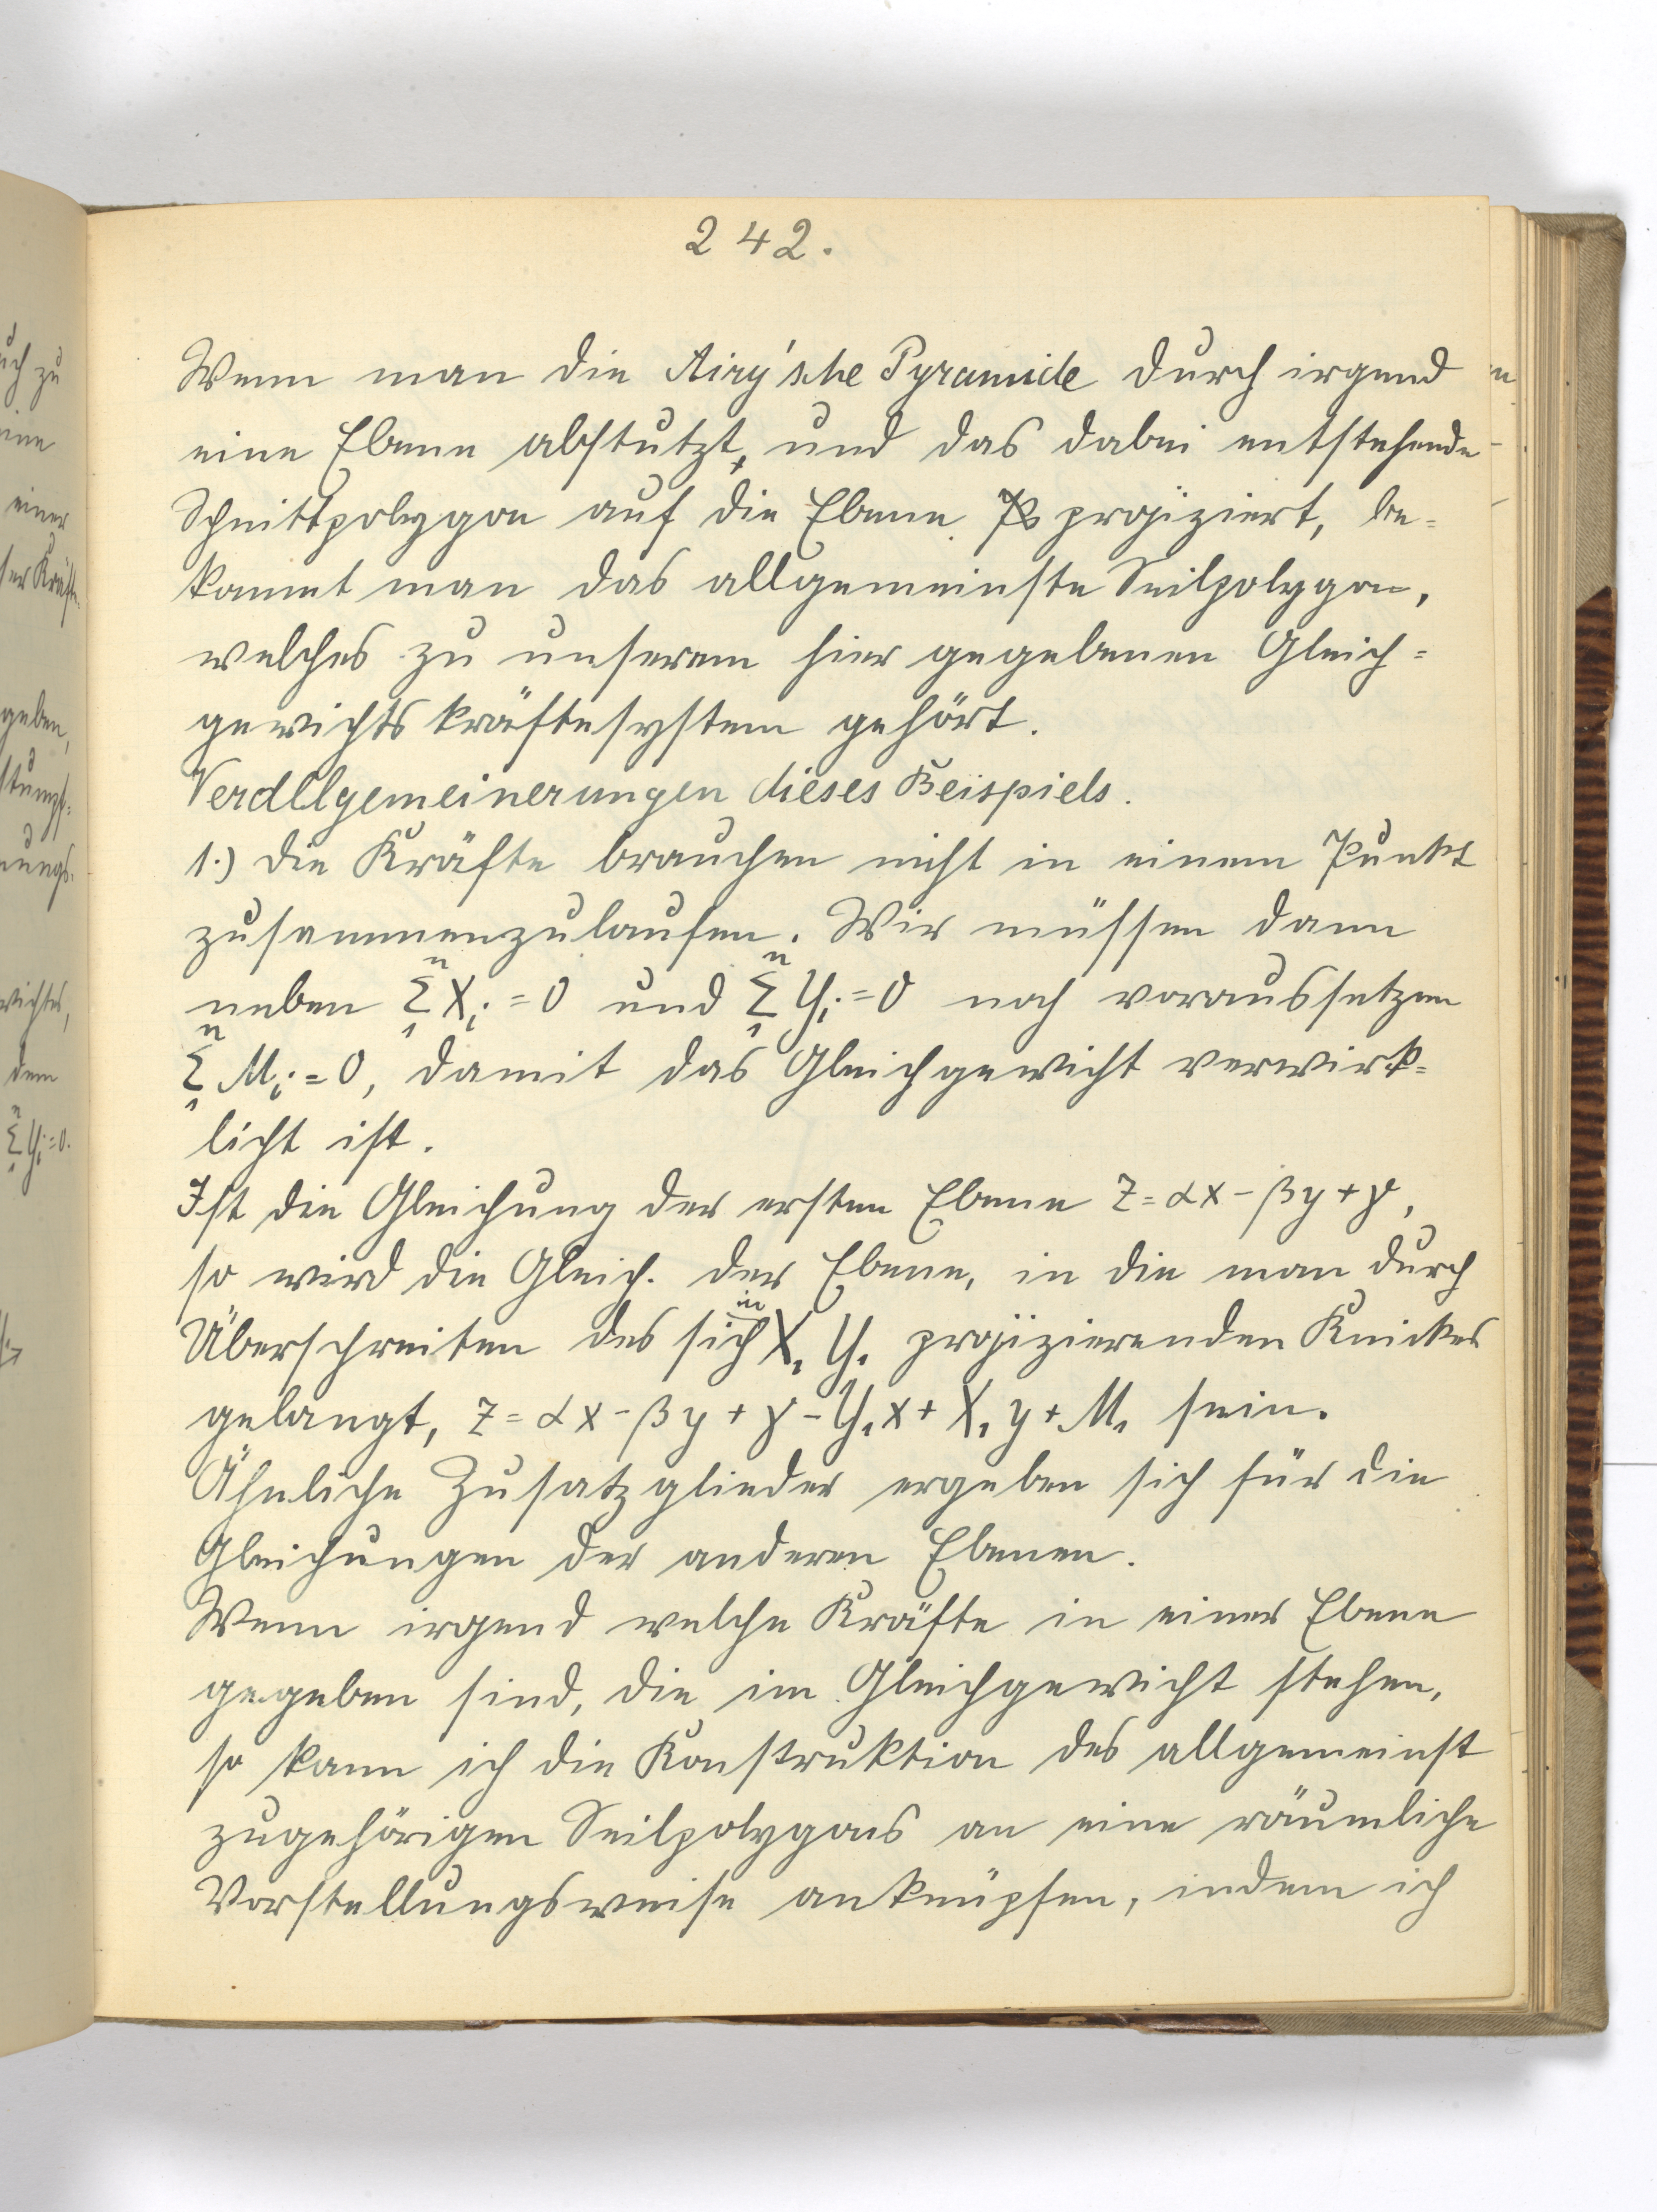 242.
Wenn man die Airy'sche Pyramide durch irgend
eine Ebene abstutzt, und das dabei entstehende
Schnittpolygon auf die Ebene projiziert, be=
kommt man das allgemeinste Seilpolygon,
welches zu unserem hier gegebenen Gleich=
gewichtskräftesystem gehört.
Verallgemeinerungen dieses Beispiels.
1.) Die Kräfte brauchen nicht in einem Punkt
zusammenzulaufen. Wir müssen dann
neben Σ₁ⁿ Xᵢ = 0 und Σ₁ⁿ Yᵢ = 0 noch voraussetzen
Σ₁ⁿ Mᵢ = 0, damit das Gleichgewicht verwirk=
licht ist.
Ist die Gleichung der ersten Ebene z = αx - βy + γ,
so wird die Gleich. der Ebene, in die man durch
Überschreiten des sich in X₁ Y₁ projizierenden Knickes
gelangt, z = αx - βy + γ - Y₁x + X₁y + M₁ sein.
Ähnliche Zusatzglieder ergeben sich für die
Gleichungen der anderen Ebenen.
Wenn irgend welche Kräfte in einer Ebene
gegeben sind, die im Gleichgewicht stehen,
so kann ich die Konstruktion des allgemeinst
zugehörigen Seilpolygons an eine räumliche
Vorstellungsweise anknüpfen, indem ich